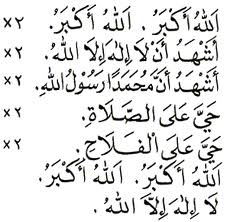 اَللهُ أَكْبَرُ. اَللهُ أَكْبَرُ. ×٢
أَشْهَدُ أَنْ لَا إِلٰهَ إِلَّا اللهُ. ×٢
أَشْهَدُ أَنَّ مُحَمَّدًا رَسُوْلُ اللهِ. ×٢
حَيَّ عَلَى الصَّلَاةِ. ×٢
حَيَّ عَلَى الْفَلَاحِ. ×٢
اَللهُ أَكْبَرُ. اَللهُ أَكْبَرُ.
لَا إِلٰهَ إِلَّا اللهُ.